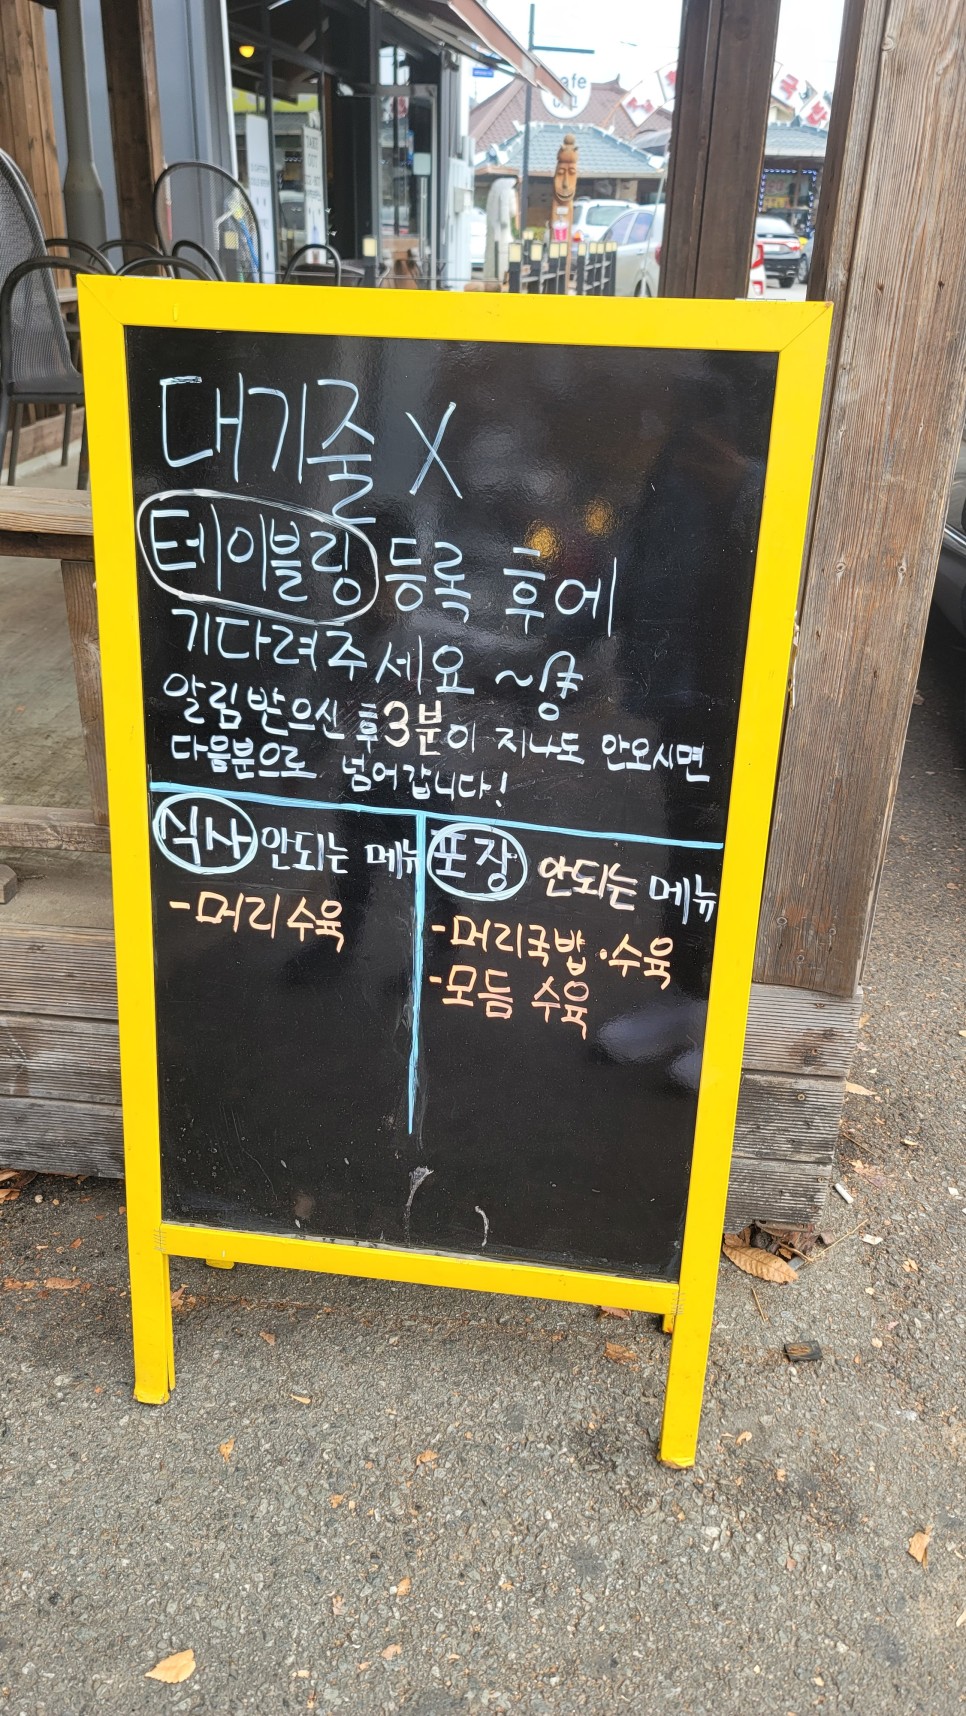 대기줄 X
테이블링 등록 후에
기다려주세요 ~
알림받으신 후 3분이 지나도 안오시면
다음분으로 넘어갑니다!
식사 안되는 메뉴
- 머리수육
포장 안되는 메뉴
- 머리국밥·수육
- 모듬 수육
cafe